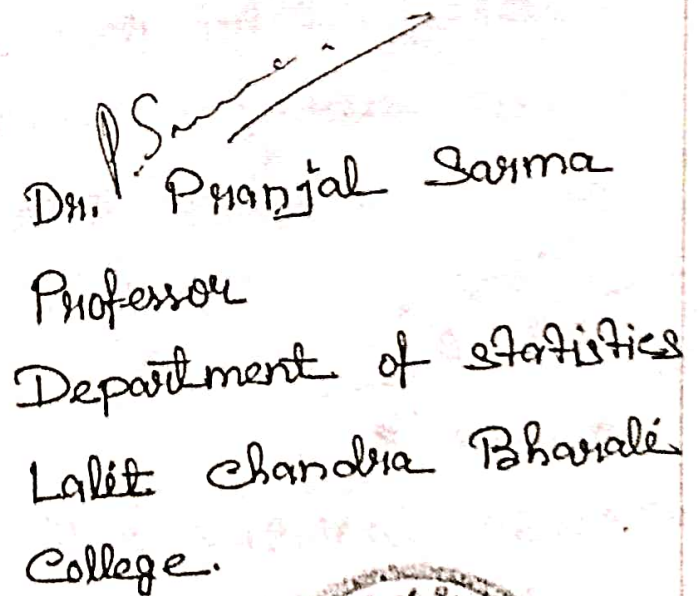 P. Sarma
Dr. Pranjal Sarma
Professor
Department of statistics
Lalit chandra Bharali
College.